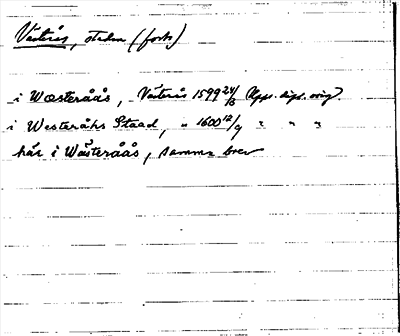 Västerås, staden (forts)
i Wæsteråås, Västerås 1599 24/3 Upps. dipl. orig.
i Westeråhs Staad, " 1600 12/9 " " "
här i Wästeråås, samma brev